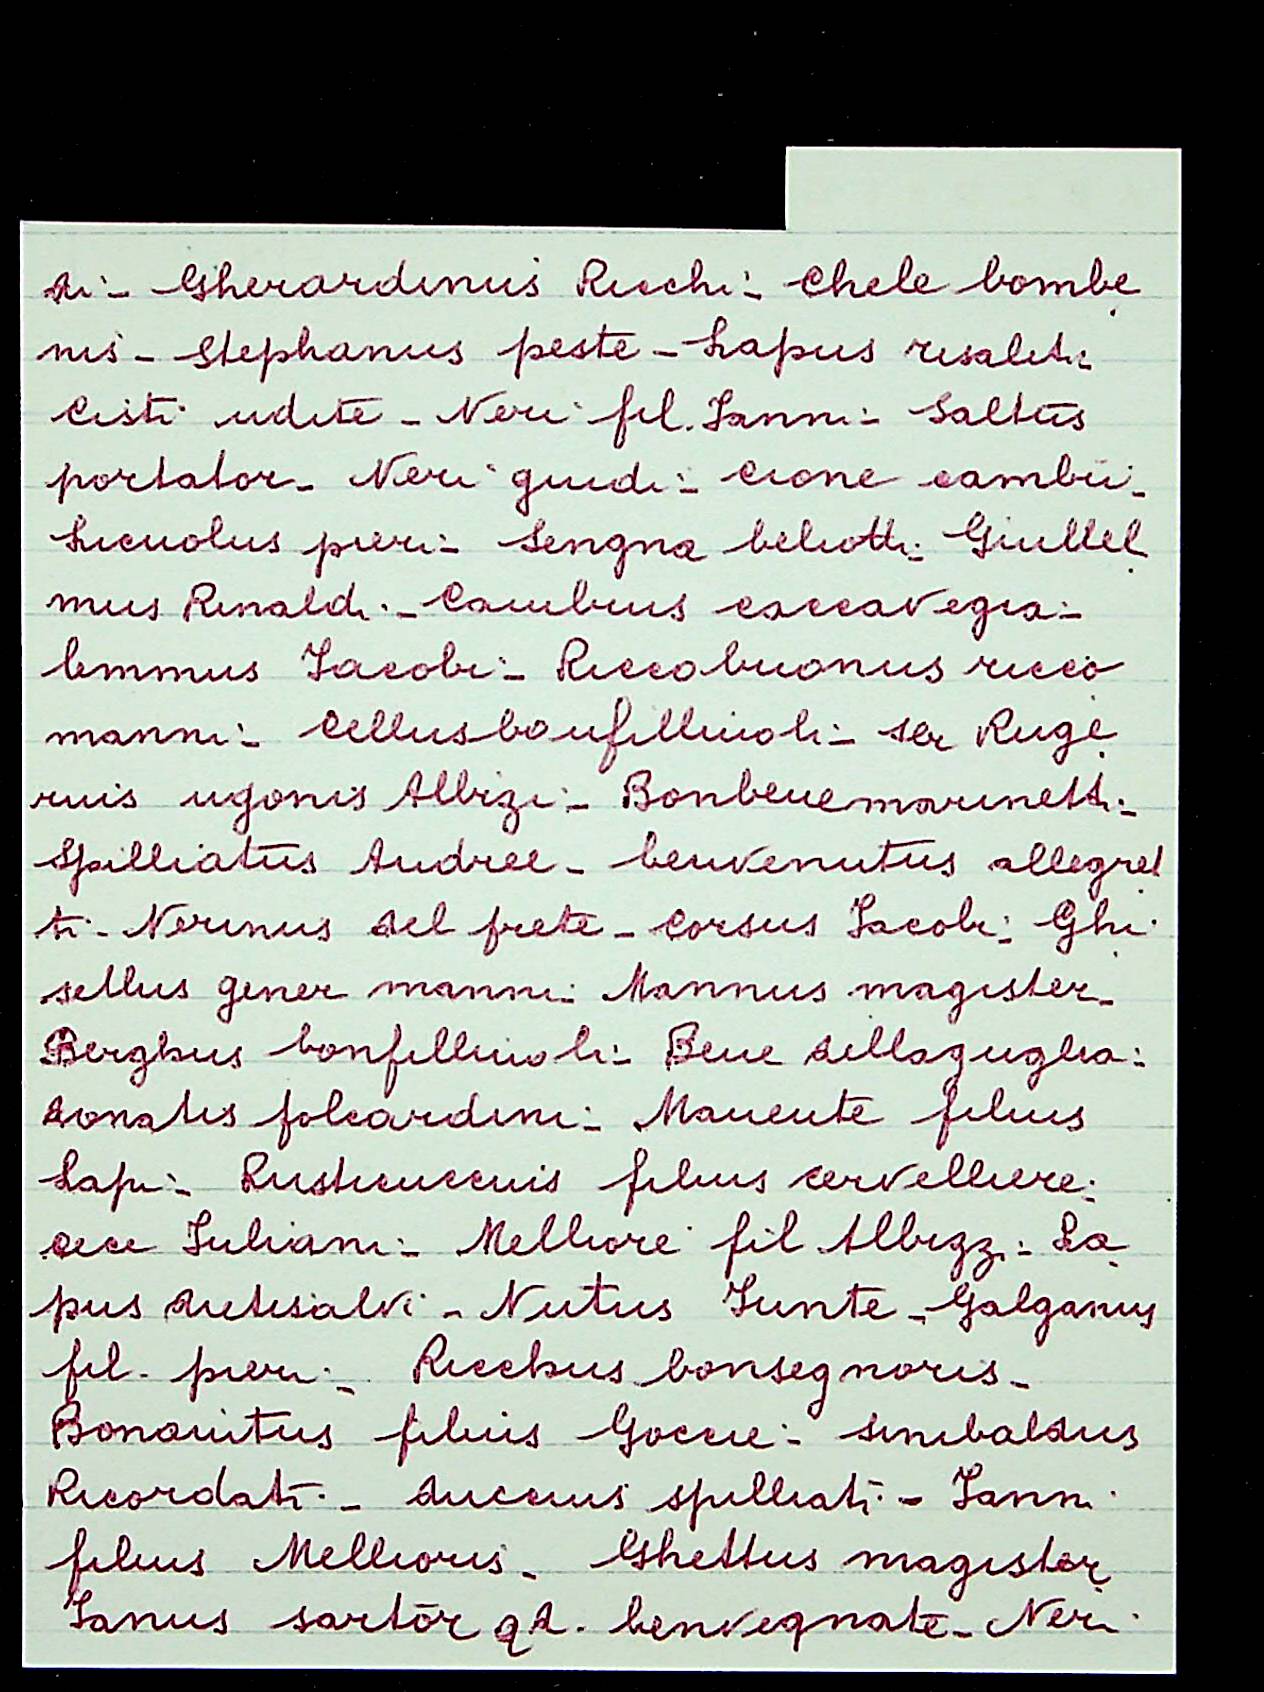 di - Gherardinus Ricchi - Chele bombe
nis - Stephanus peste - Lapus risaliti
Cisti udite - Neri fil. Ianni - Saltus
portator - Neri guidi - Cione cambii -
Lucuolus pieri - Sengna beliotti - Giullel
mus Rinaldi - Cambius caccavegia -
lemmus Iacobi - Riccobuonus ricco
manni - Cellus bonfilliuoli - ser Ruge
rius ugonis Albizi - Bonbene marinetti -
Spilliatus Andree - benvenutus allegret
ti - Nerinus del frete - Corsus Iacobi - Ghi
sellus gener manni - Mannus magister -
Berghus bonfilliuoli - Bene dellaguglia -
donatis folcardini - Manente filius
Lapi - Rusticuccius filius cervelliere -
cece Iuliani - Melliore fil Albizzi - La
pus dietisalvi - Nutus Iunte - Galganus
fil. pieri - Ricchus bonsegnoris -
Bonavitus filius Goccie - sinibaldus
Ricordati - duccius spilliati - Ianni
filius Mellioris - Ghettus magister
Ianus sartor qd. benvegnate - Neri